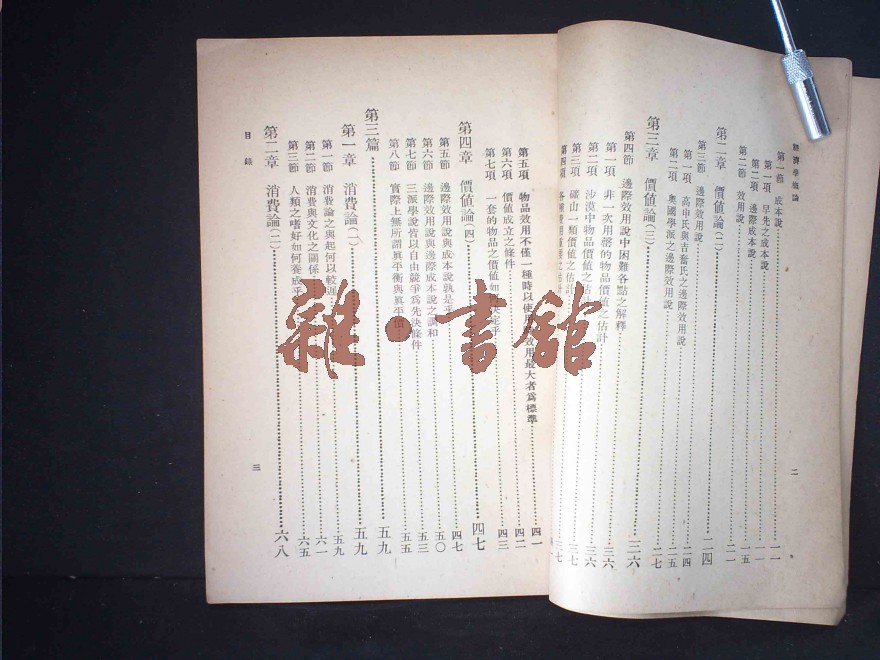 經濟學概論
二
第一節 成本說 一一
第一項 早先之成本說 一一
第二項 邊際成本說 一五
第二節 效用說 二一
第二章 價值論(二) 二四
第三節 邊際效用說
第一項 高申氏與吉奮氏之邊際效用說 二四
第二項 奧國學派之邊際效用說 二五
第三章 價值論(三) 二七
第四節 邊際效用說中困難各點之解釋 三六
第一項 非一次用罄的物品價值之估計 三六
第二項 沙漠中物品價值之估計 三六
第三項 礦山一類價值之估計 三七
第四項
第五項 物品效用不僅一種時以使用效用最大者爲標準 四一
第六項 價值成立之條件 四二
第七項 一套的物品之價值如何決定乎 四三
第四章 價值論(四) 四七
第五節 邊際效用說與成本說孰是乎 四七
第六節 邊際效用說與邊際成本說之調和 五〇
第七節 三派學說皆以自由競爭爲先決條件 五三
第八節 實際上無所謂眞平衡與眞平價 五五
第三篇 五九
第一章 消費論(一) 五九
第一節 消費論之興起何以較遲 五九
第二節 消費與文化之關係 六一
第三節 人類之嗜好如何養成乎 六五
第二章 消費論(二) 六八
目錄
三
雜·書館